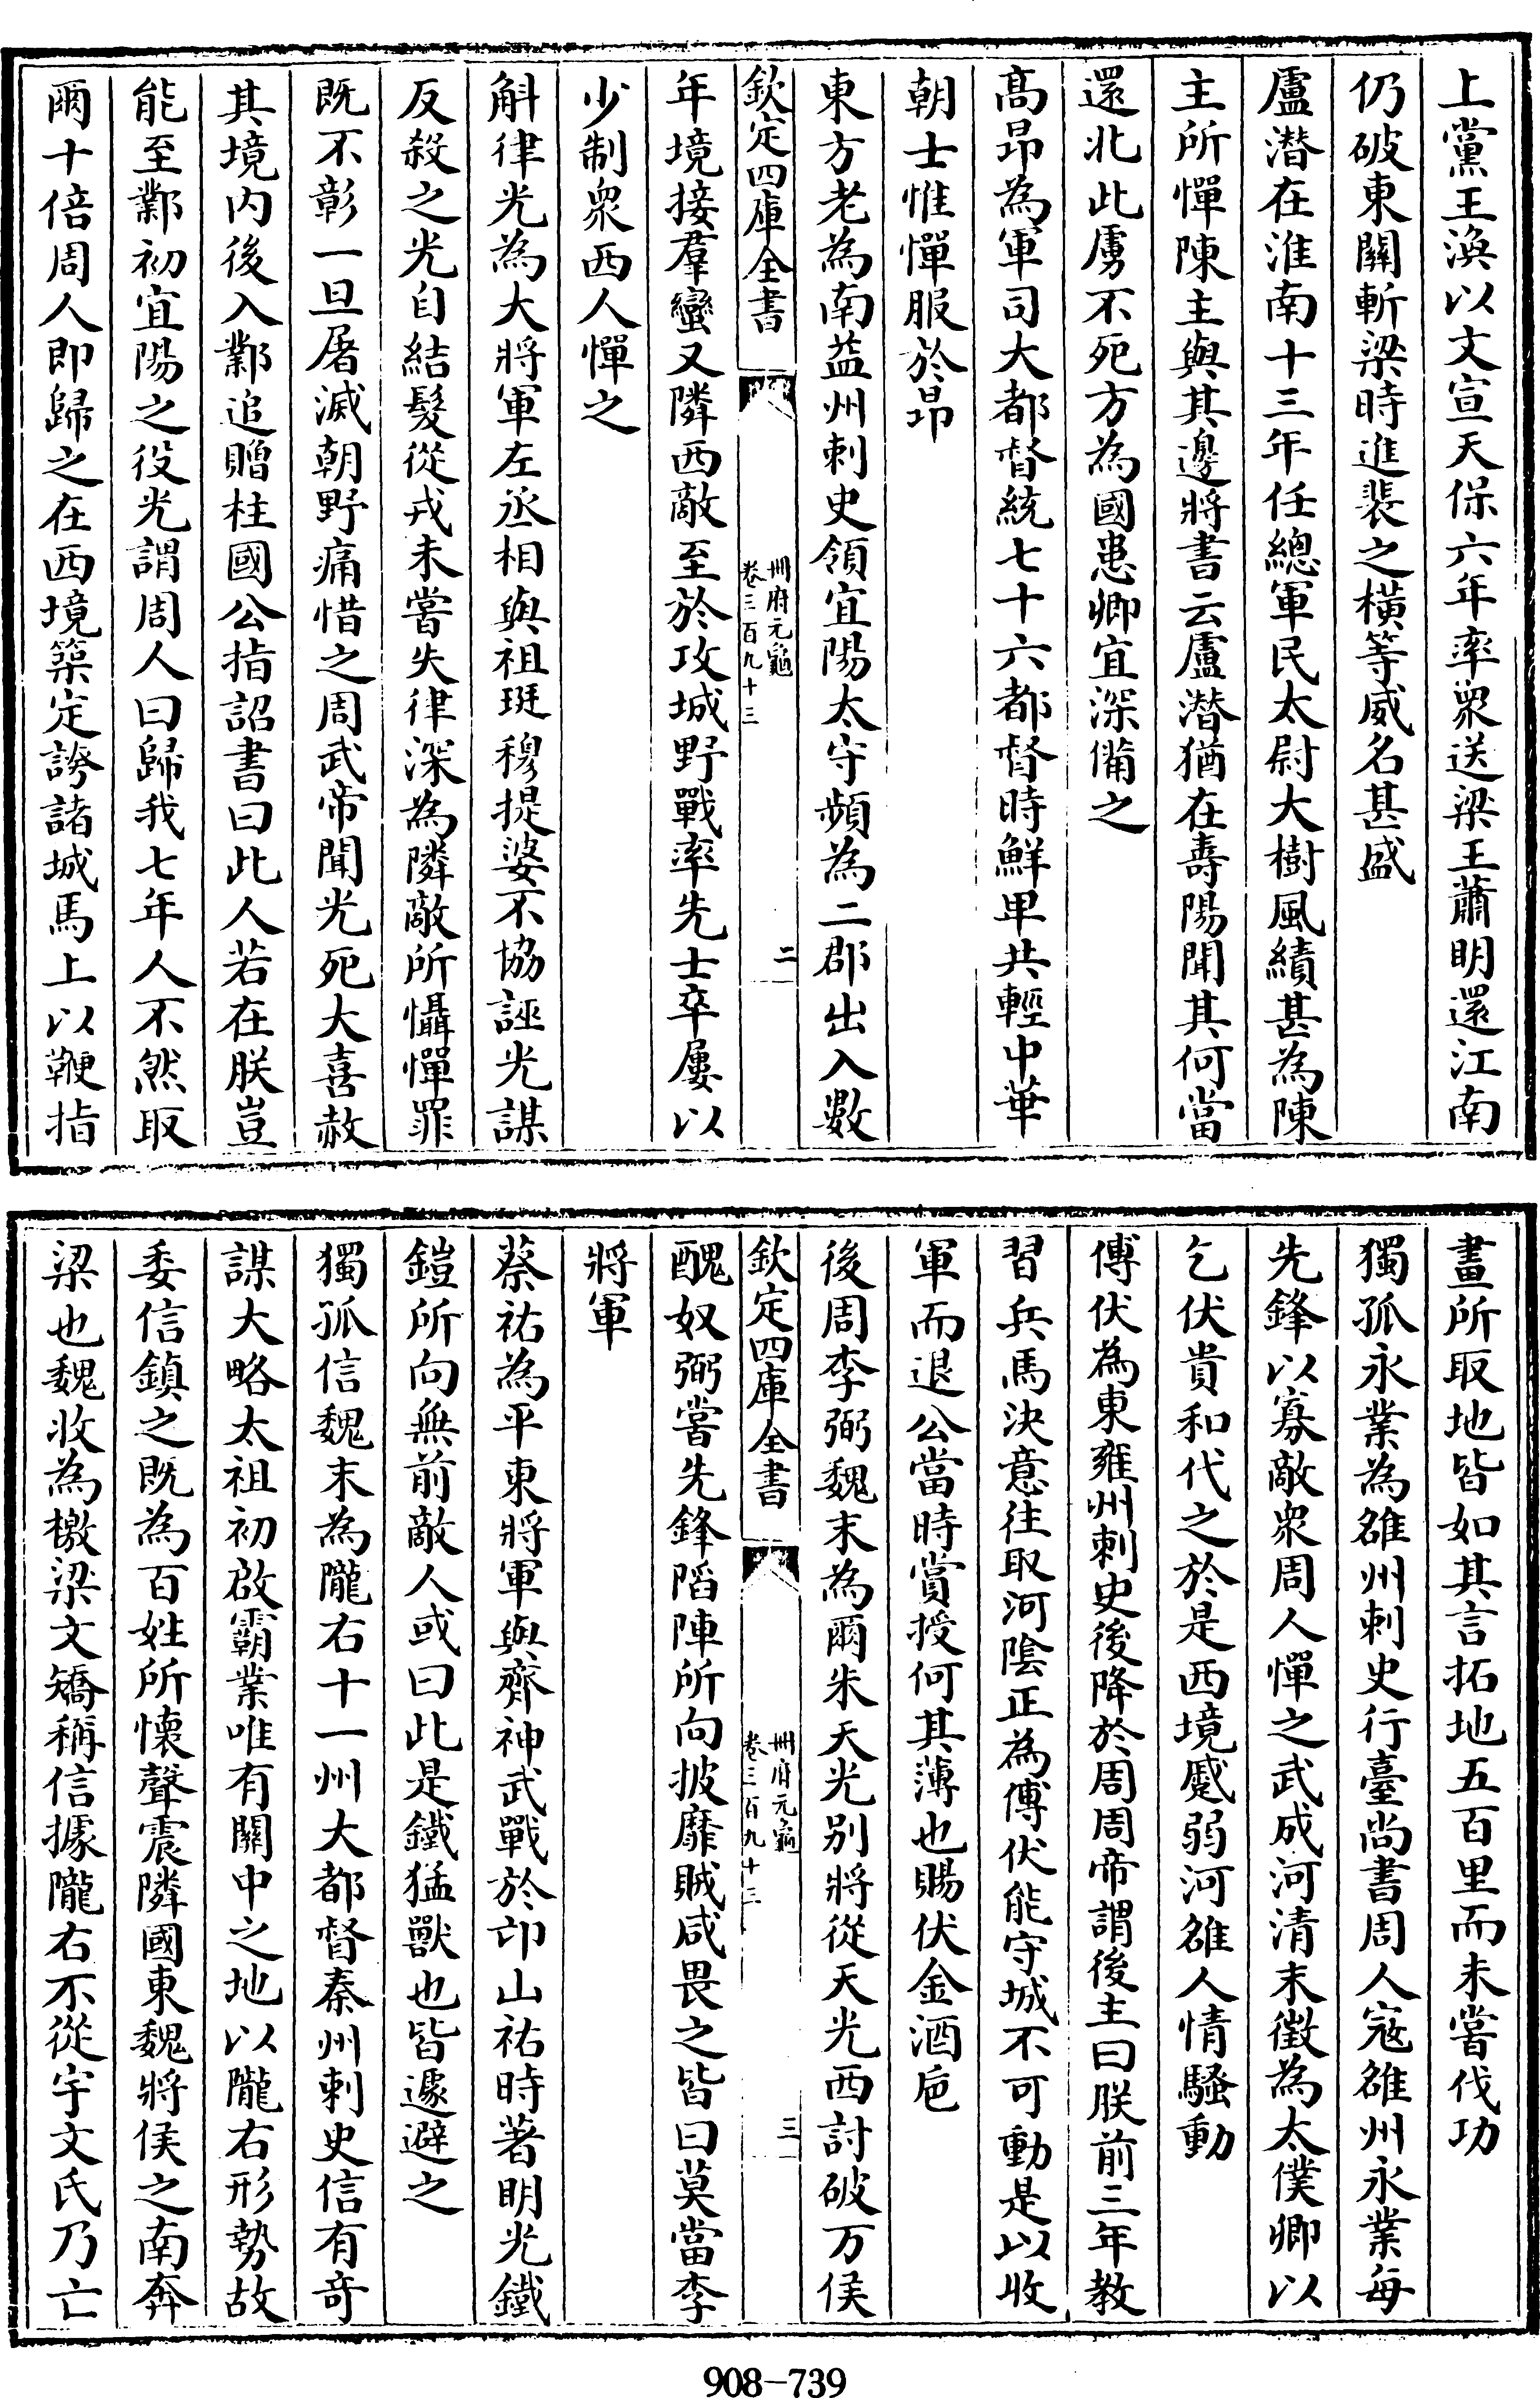 上黨王渙以文宣天保六年率衆送梁王蕭明還江南
仍破東關斬梁時進裴之橫等威名甚盛
盧潛在淮南十三年任總軍民太尉大樹風績甚為陳
主所憚陳主與其邊將書云盧潛猶在壽陽聞其何當
還北此虜不死方為國患卿宜深備之
高昂為軍司大都督統七十六都督時鮮卑共輕中華
朝士惟憚服於昂
東方老為南益州刺史領宜陽太守頻為二郡出入數
欽定四庫全書
冊府元龜
卷三百九十三
二
年境接羣蠻又隣西敵至於攻城野戰率先士卒屢以
少制衆西人憚之
斛律光為大將軍左丞相與祖珽穆提婆不協誣光謀
反殺之光自結髮從戎未嘗失律深為隣敵所懾憚罪
既不彰一旦屠滅朝野痛惜之周武帝聞光死大喜赦
其境内後入鄴追贈柱國公指詔書曰此人若在朕豈
能至鄴初宜陽之役光謂周人曰歸我七年人不然取
爾十倍周人即歸之在西境築定誇諸城馬上以鞭指
畫所取地皆如其言拓地五百里而未嘗伐功
獨孤永業為雒州刺史行臺尚書周人宼雒州永業每
先鋒以寡敵衆周人憚之武成河清末徵為太僕卿以
乞伏貴和代之於是西境蹙弱河雒人情騷動
傅伏為東雍州刺史後降於周周帝謂後主曰朕前三年教
習兵馬決意往取河陰正為傅伏能守城不可動是以收
軍而退公當時賞授何其薄也賜伏金酒巵
後周李弼魏末為爾朱天光别將從天光西討破万俟
欽定四庫全書
冊府元龜
卷三百九十三
三
醜奴弼嘗先鋒陷陣所向披靡賊咸畏之皆曰莫當李
將軍
蔡祐為平東將軍與齊神武戰於邙山祐時著明光鐵
鎧所向無前敵人或曰此是鐵猛獸也皆遽避之
獨孤信魏末為隴右十一州大都督秦州刺史信有奇
謀大略太祖初啟霸業唯有關中之地以隴右形勢故
委信鎮之既為百姓所懷聲震隣國東魏將侯之南奔
梁也魏收為檄梁文矯稱信據隴右不從宇文氏乃亡
908-739